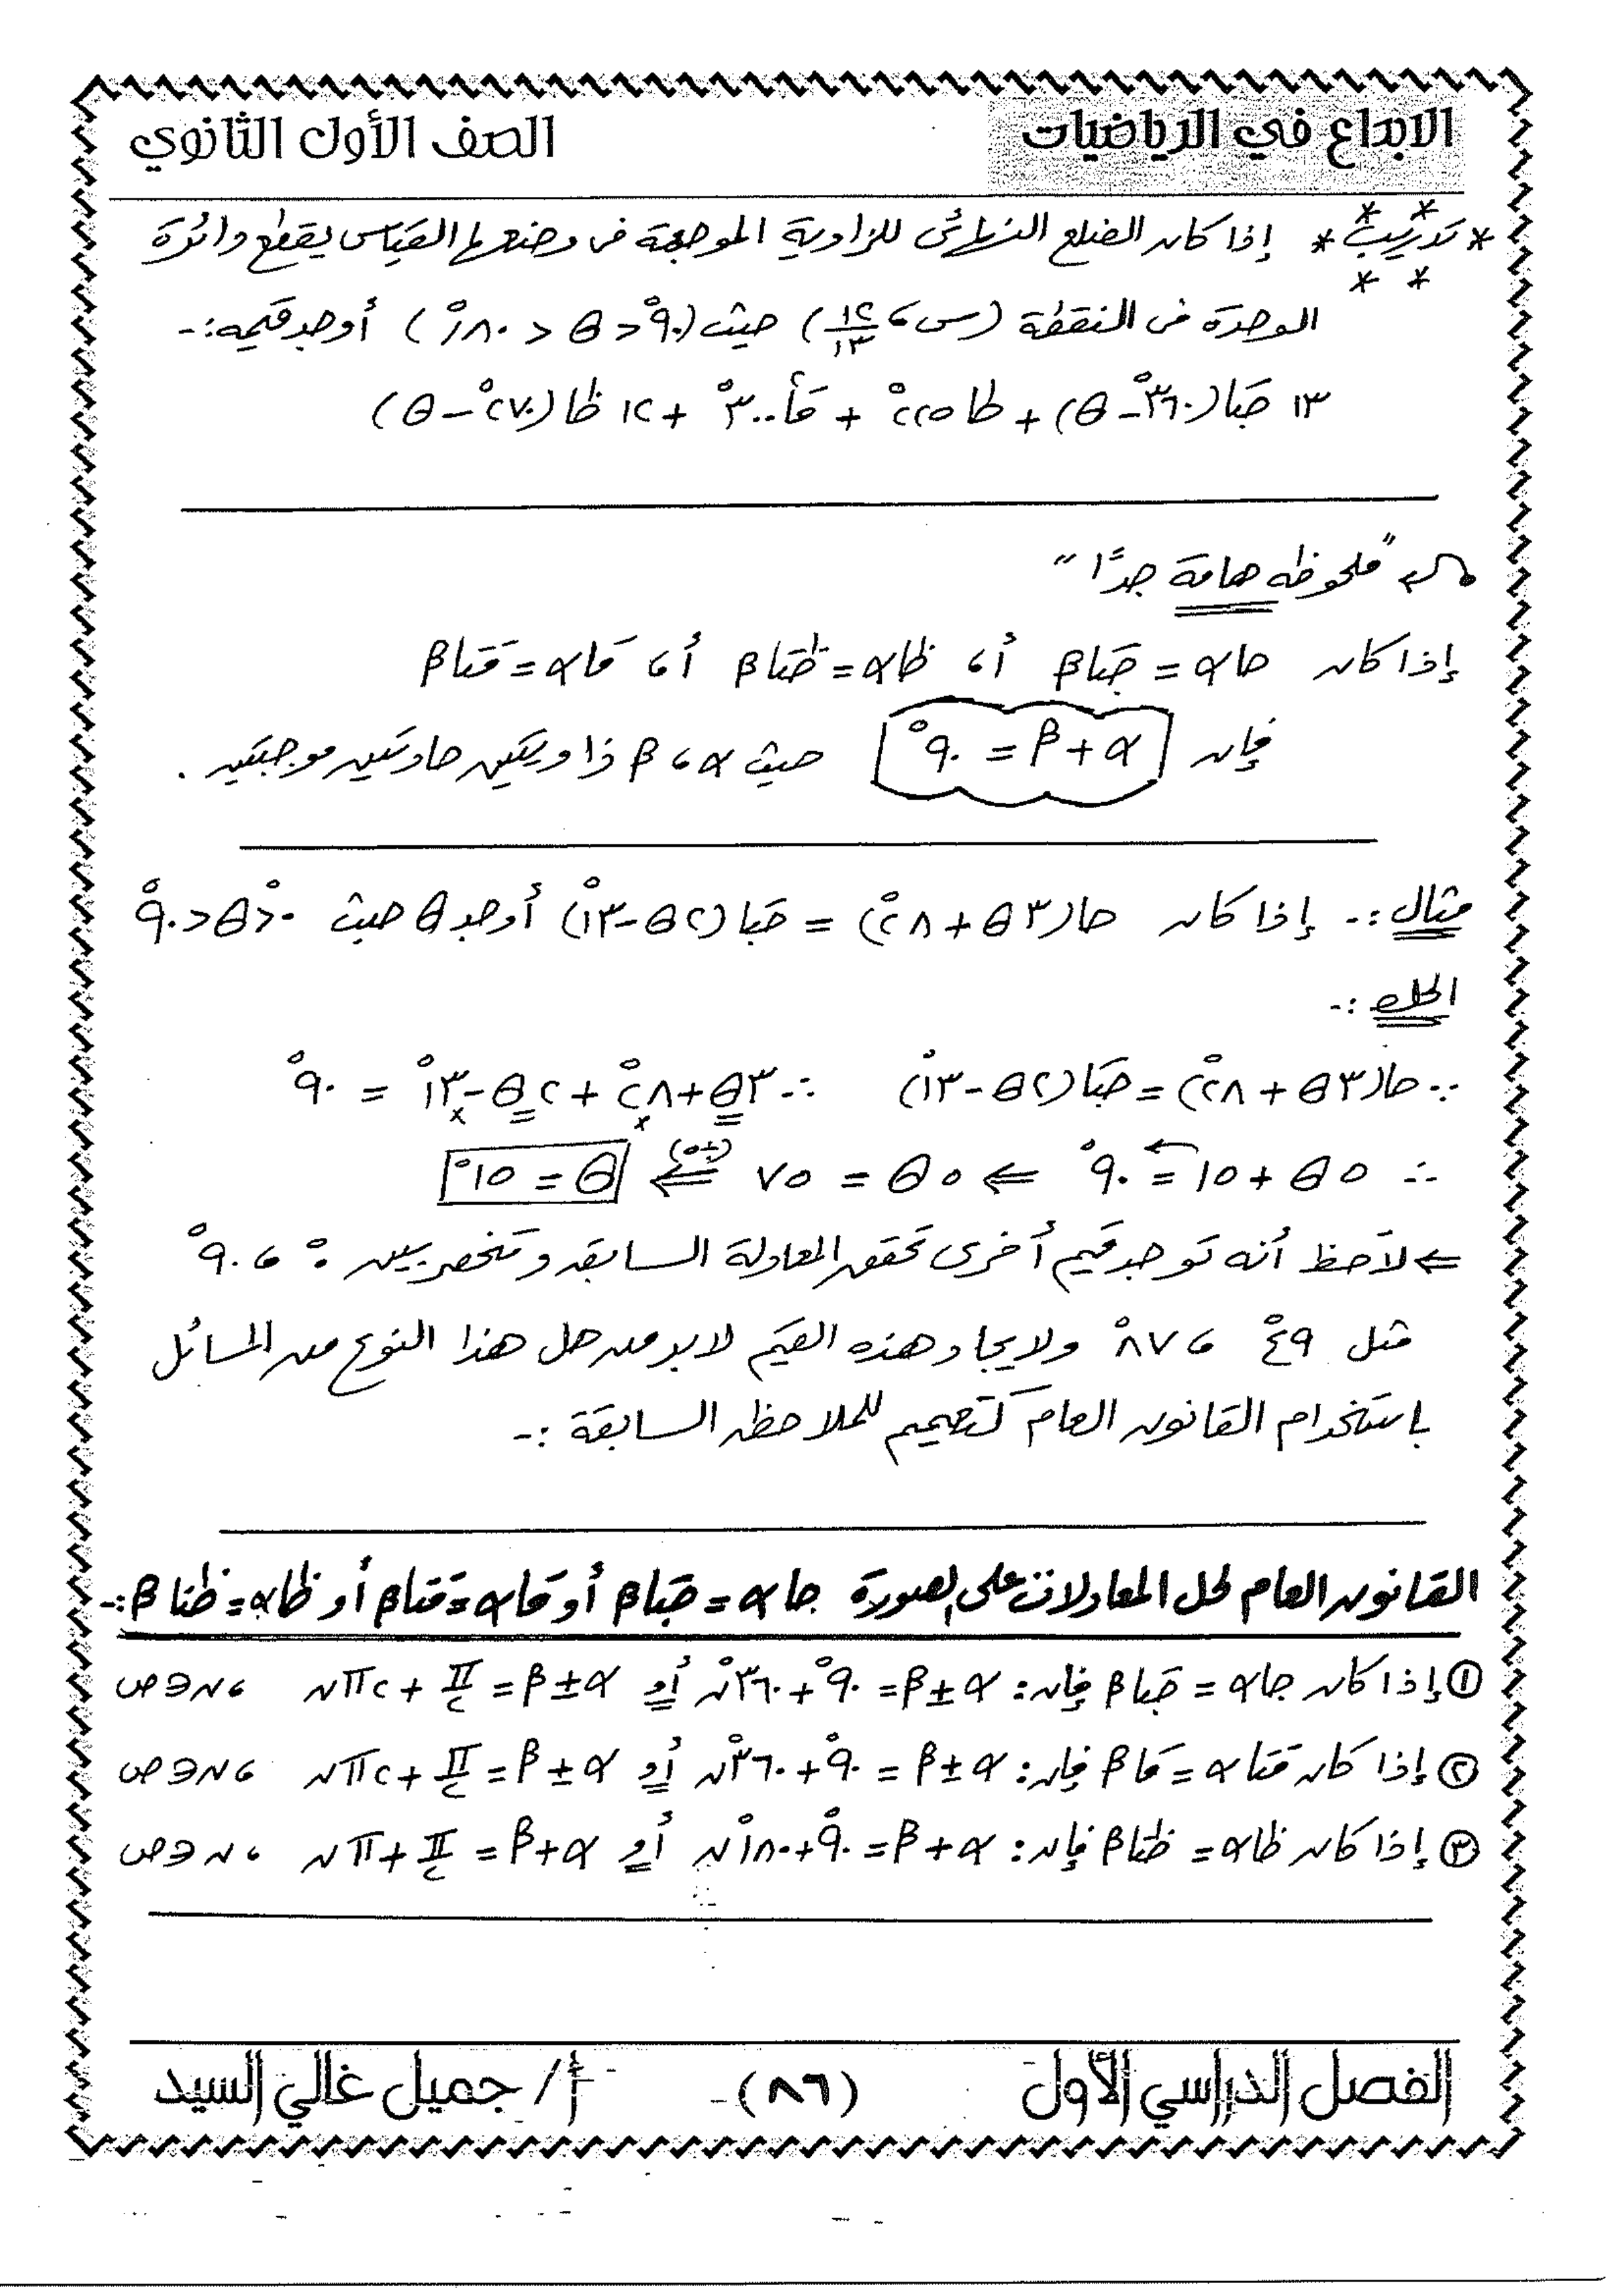 الابداع في الرياضيات
الصف الأول الثانوي
* تدريب * إذا كان الضلع النهائى للزاوية الموجهة فى وضعها القياسى يقطع دائرة
الوحدة فى النقطة (س ، ١٢/١٣) حيث (٩٠° < θ < ١٨٠°) أوجد قيمة :-
١٣ جتا(٣٦٠° - θ) + طا ٢٢٥° + قا ٣٠٠° + ١٢ ظا(٢٧٠° - θ)
"ملحوظه هامة جدًا"
إذا كان حا α = جتا β أ، ظا α = ظتا β أ، قا α = قتا β
فإن α + β = ٩٠° حيث α ، β زاويتين حادتين موجبتين .
مثال :- إذا كان حا(٣θ + ٢٨°) = جتا(٢θ - ١٣°) أوجد θ حيث ٠° < θ < ٩٠°
الحل :-
∵ حا(٣θ + ٢٨°) = جتا(٢θ - ١٣°) ∴ ٣θ + ٢٨° + ٢θ - ١٣° = ٩٠°
∴ ٥θ + ١٥ = ٩٠° ⇐ ٥θ = ٧٥ ⇐ (÷٥) θ = ١٥°
⇐ لاحظ أنه توجد قيم أخرى تحقق المعادلة السابقه وتنحصر بين ٠° ، ٩٠°
مثل ٤٩° ، ٨٧° ولايجاد هذه القيم لابد من حل هذا النوع من المسائل
باستخدام القانون العام كتعميم للملاحظه السابقة :-
القانون العام لحل المعادلات على لصورة جا α = جتا β أو قا α = قتا β أو ظا α = ظتا β :-
① إذا كان جا α = جتا β فإن : α ± β = ٩٠° + ٣٦٠° ن أو α ± β = π/٢ + ٢π ن ، ن ∈ ص
② إذا كان قتا α = قا β فإن : α ± β = ٩٠° + ٣٦٠° ن أو α ± β = π/٢ + ٢π ن ، ن ∈ ص
③ إذا كان ظا α = ظتا β فإن : α + β = ٩٠° + ١٨٠° ن أو α + β = π/٢ + π ن ، ن ∈ ص
الفصل الدراسي الأول
(٨٦)
أ/ جميل غالي السيد